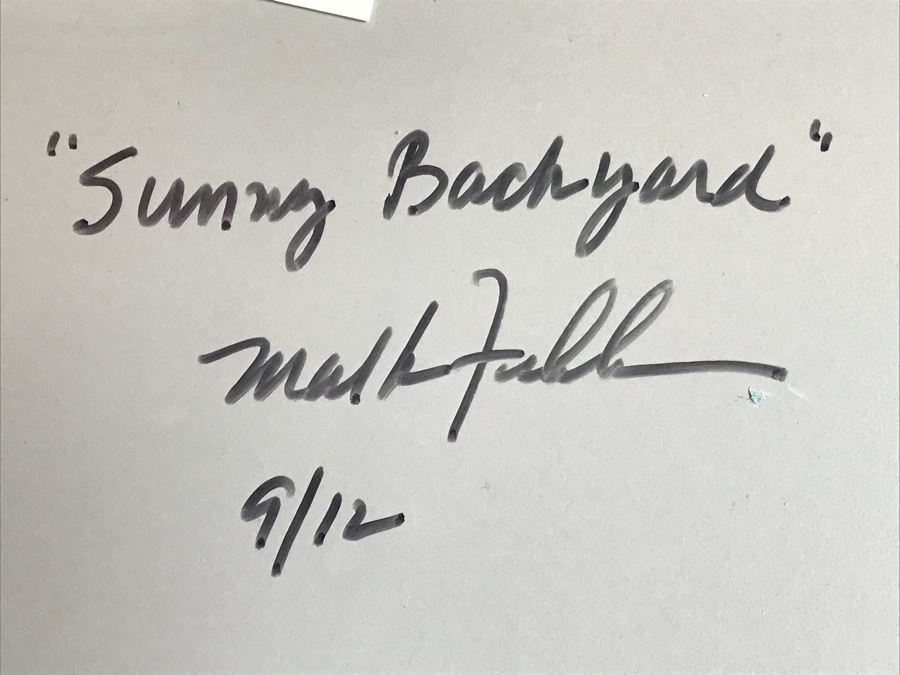 "Sunny Backyard"
9/12